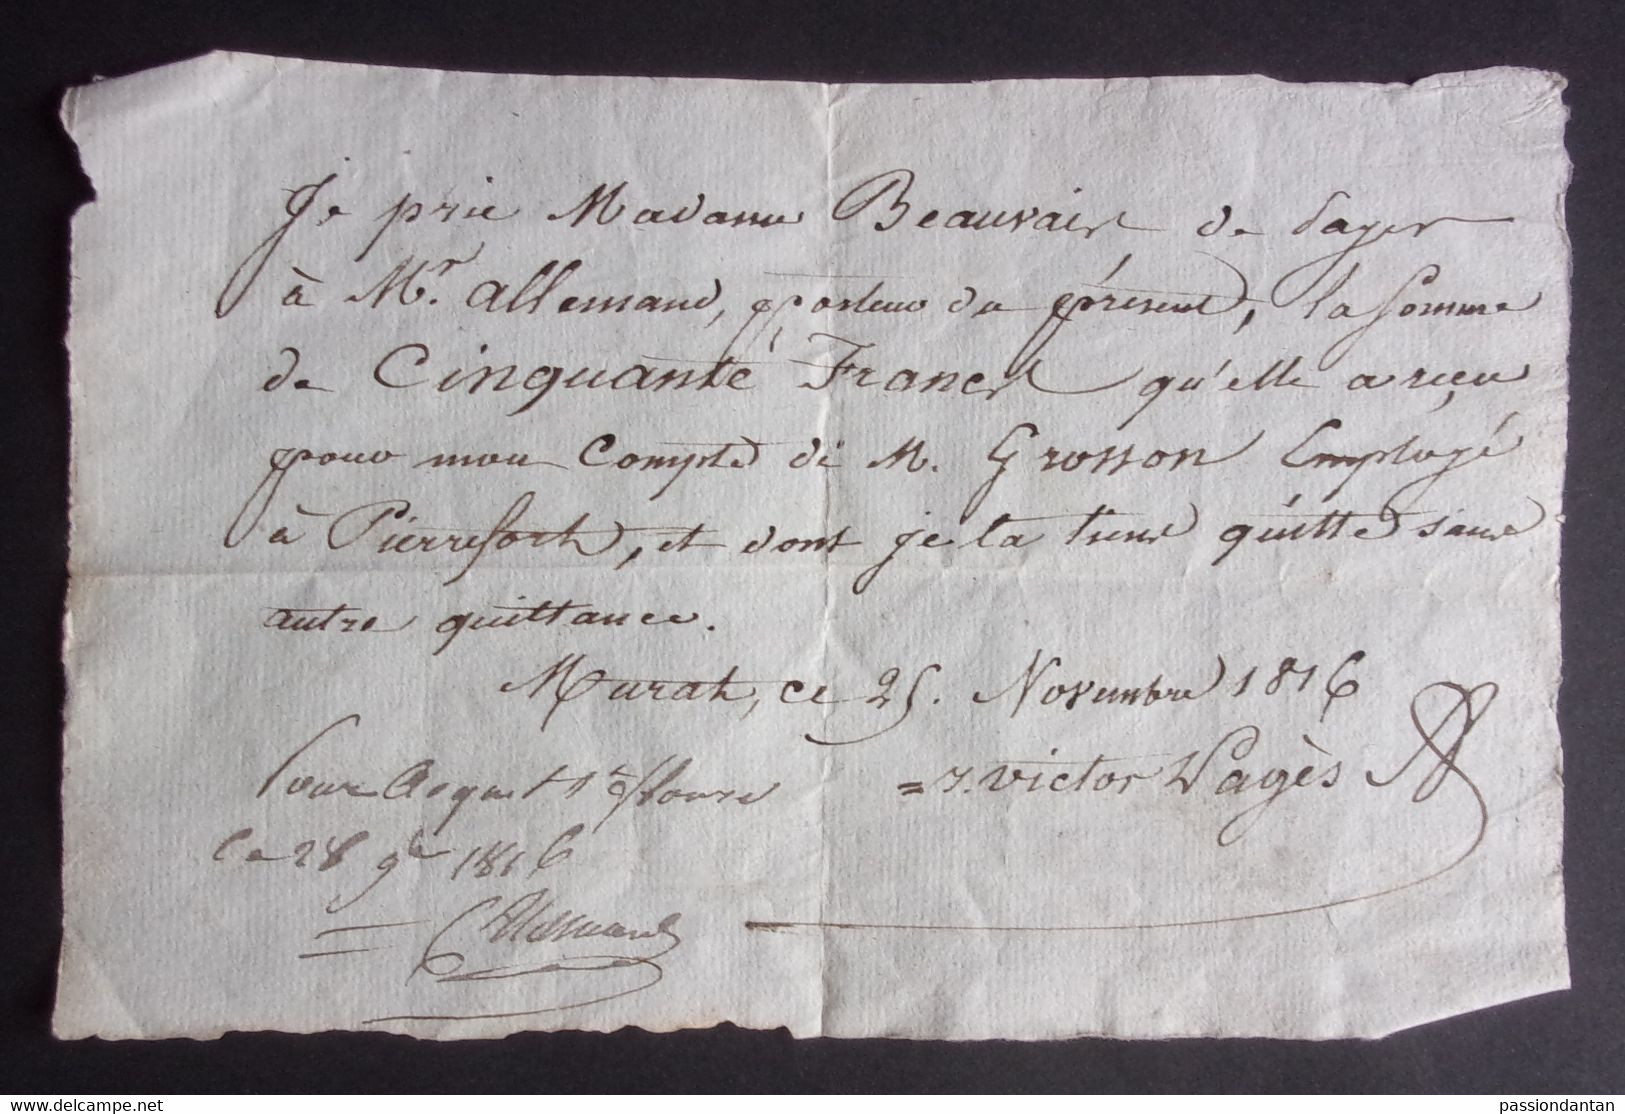 Je prie Madame Beauvais de payer
à Mr. allemand, porteur du présent, la somme
de Cinquante Francs qu'elle a reçu
pour mon Compte de M. Grosson Employé
à Pierrefort, et dont je la tiens quitte sans
autre quittance.
Murat, ce 25. Novembre 1816
= J. Victor Pagès
Pour Acquit St flour
Ce 28 9bre 1816
= Allemand
www.delcampe.net
passiondantan